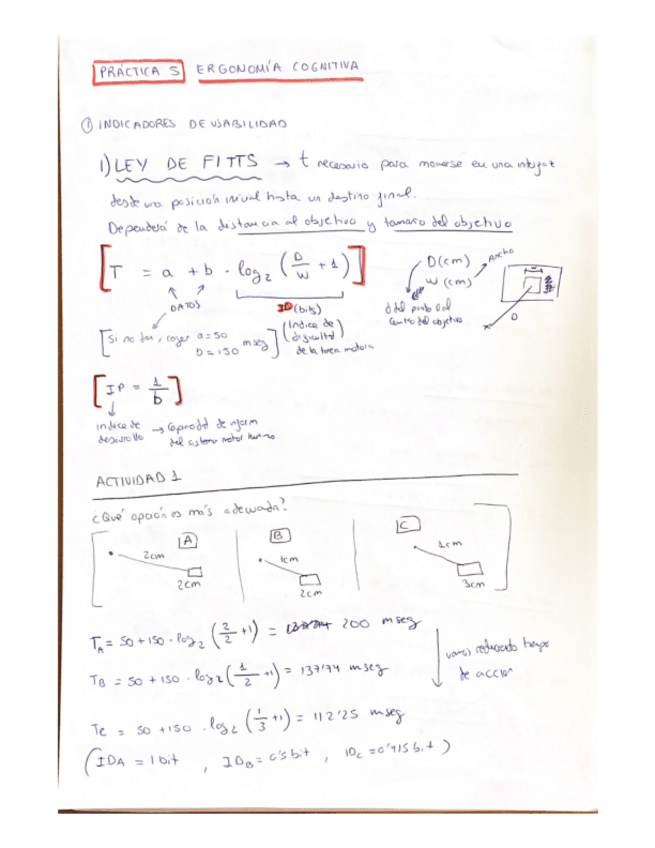 PRÁCTICA 5 ERGONOMÍA COGNITIVA
① INDICADORES DE USABILIDAD
1) LEY DE FITTS → t necesario para moverse en una
desde una posición inicial hasta un destino final.
Dependerá de la distancia al objetivo y tamaño del objetivo
[T = a + b · log₂ (D/W + 1)]
D (cm)
W (cm)
Ancho
DATOS
ID (bits)
d del punto 0 al
centro del objetivo
D
[Si no dan, coger a=50
b=150 mseg]
(Índice de
dificultad
de la tarea motora
[IP = 1/b]
índice de
desarrollo → Capacidad de inform
del sistema motor humano
ACTIVIDAD 1
¿Qué opción es más adecuada?
A
2cm
2cm
B
1cm
2cm
C
1cm
3cm
T_A = 50 + 150 · log₂ (2/2 + 1) = 200 mseg
T_B = 50 + 150 · log₂ (1/2 + 1) = 137'74 mseg
vamos reduciendo tiempo
de acción
T_C = 50 + 150 · log₂ (1/3 + 1) = 112'25 mseg
(ID_A = 1 bit , ID_B = 0'5 bit , ID_C = 0'415 bit)